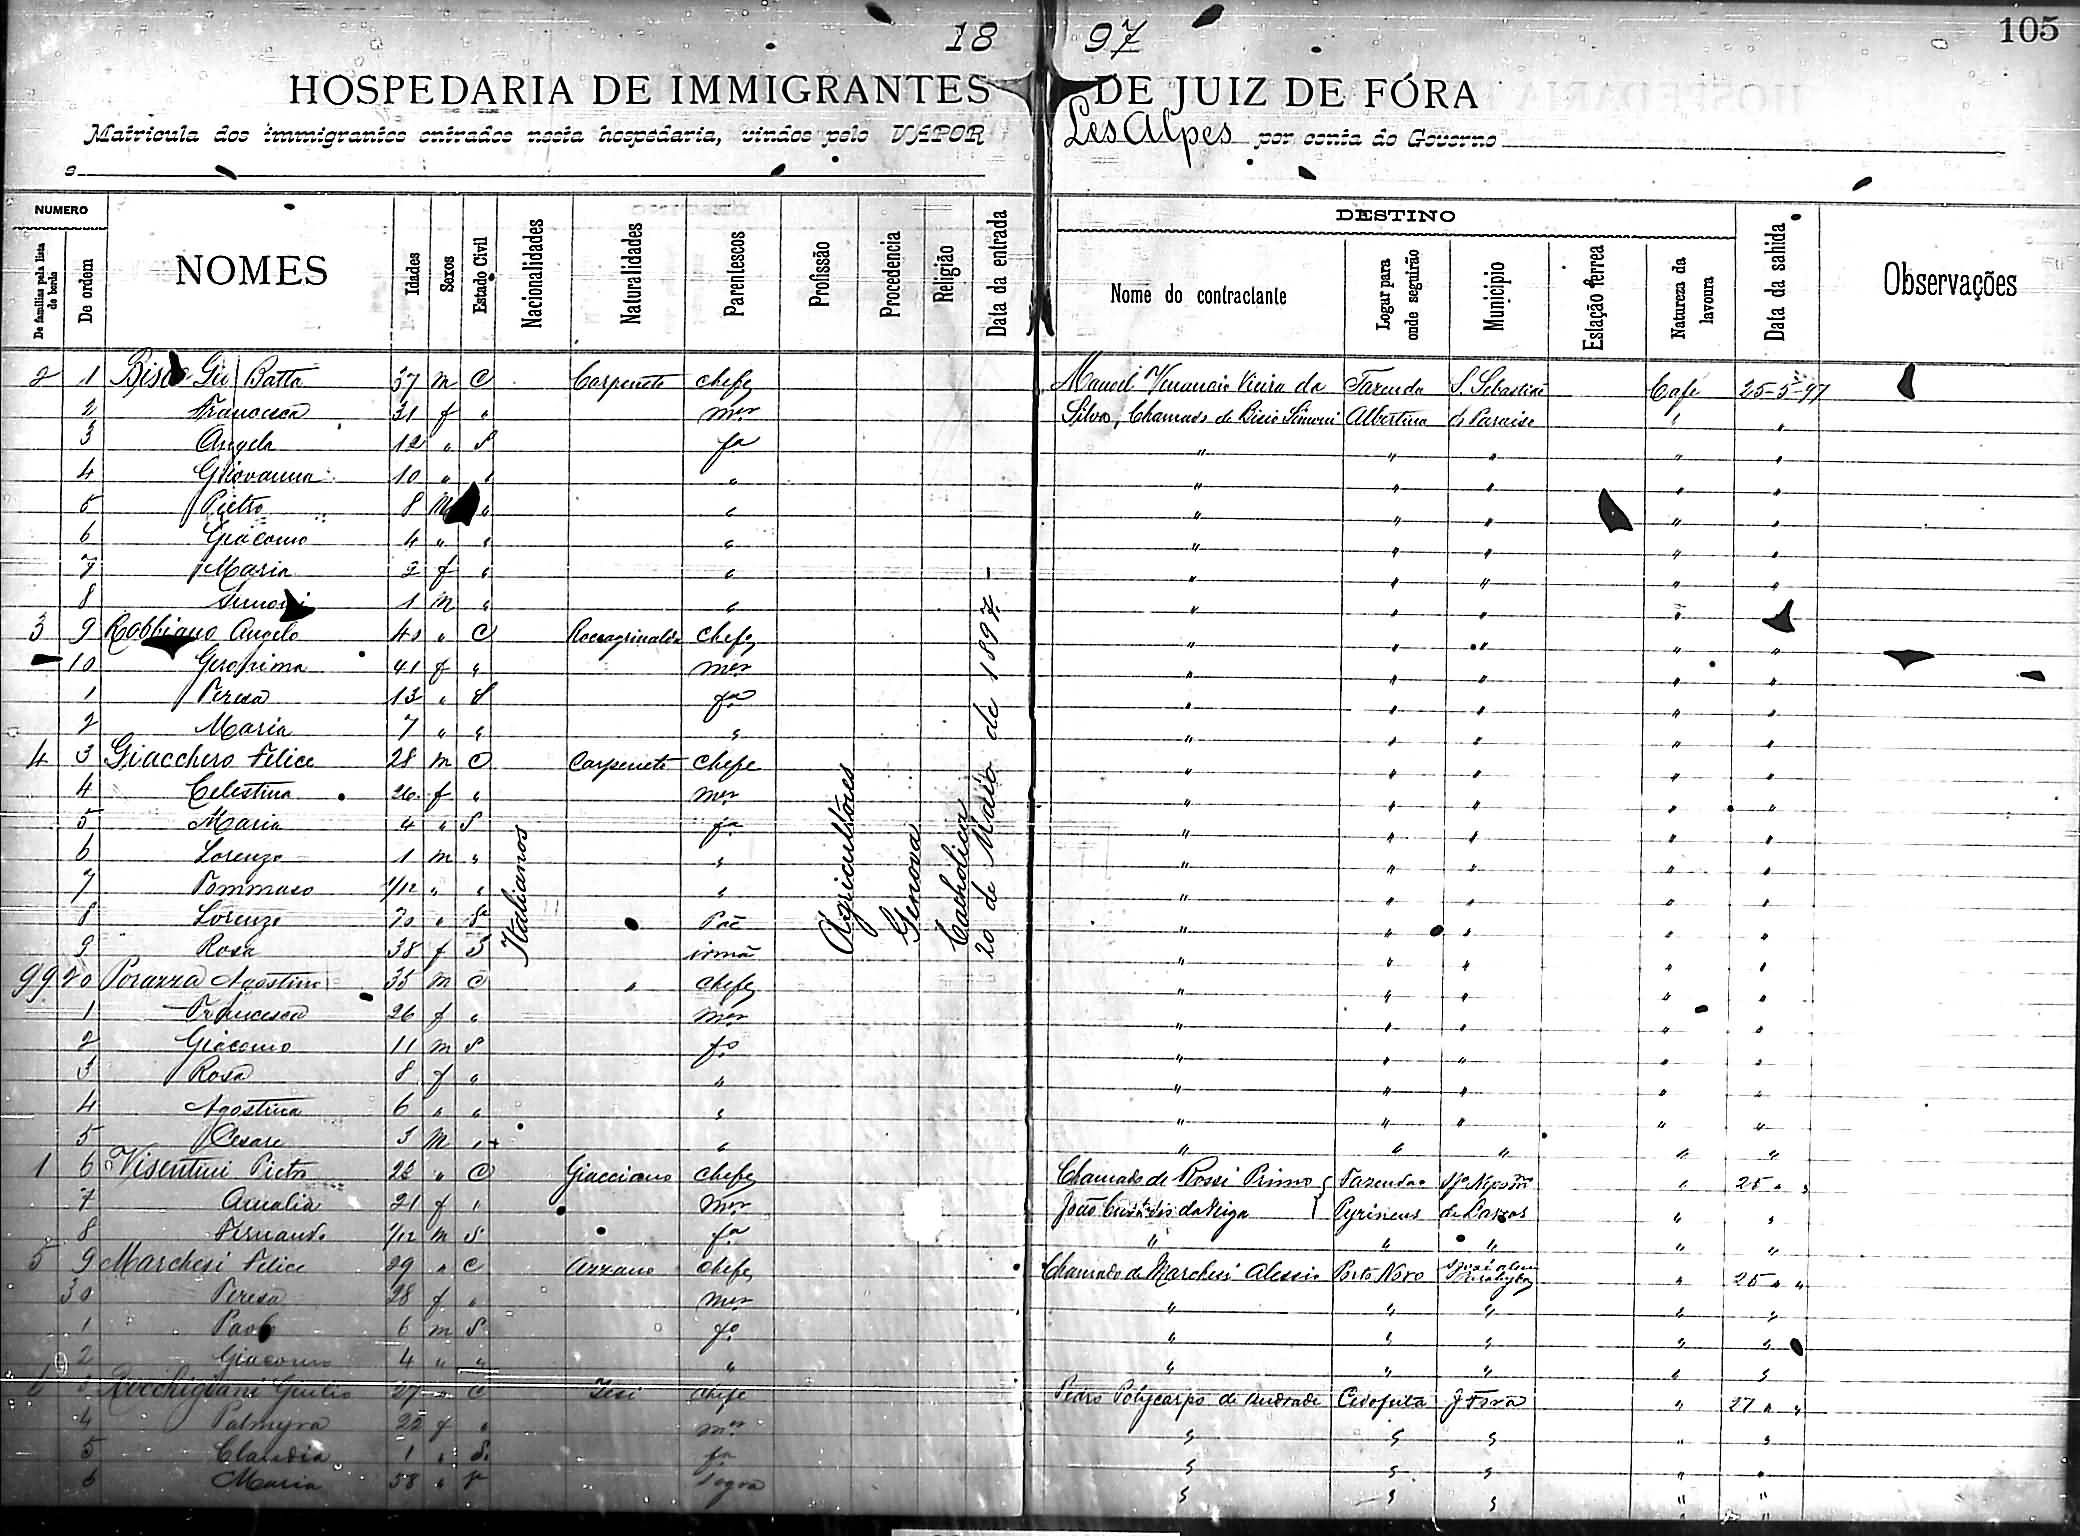 105
18 97
HOSPEDARIA DE IMMIGRANTES DE JUIZ DE FÓRA
Matricula dos immigrantes entrados nesta hospedaria, vindos pelo VAPOR Les Alpes por conta do Governo
NUMERO
De familias pela lista de bordo
De ordem
NOMES
Idades
Sexos
Estado Civil
Nacionalidades
Naturalidades
Parentescos
Profissão
Procedencia
Religião
Data da entrada
DESTINO
Nome do contractante
Logar para onde seguirão
Municipio
Estação ferrea
Natureza da lavoura
Data da sahida
Observações
2 1 Gio Batta 37 m C Carpeneto chefe Manoel Venancio Vieira da Fazenda S. Sebastião Café 25-5-97
2 Francesca 31 f " mer Silva, Chamado de Bisio Simoni Albertina do Paraiso " "
3 Angela 12 " S fa " " " " "
4 Giovanna 10 " " " " " " " "
5 Pietro 8 M " " " " " " "
6 Giacomo 4 " " " " " " " "
7 Maria 2 f " " " " " " "
8 1 M " " " " " " "
3 9 Robbiano Angelo 40 " C Roccagrimalda Chefe " " " " "
10 Geronima 41 f " mer " " " " "
1 Teresa 13 " S fa " " " " "
2 Maria 7 " " " " " " " "
4 3 Giacchero Felice 28 m C Carpeneto Chefe " " " " "
4 Celestina 26 f " mer " " " " "
5 Maria 4 " S fa " " " " "
6 Lorenzo 1 m " " " " " " "
7 Tommaso 1/12 " " " " " " " "
8 Lorenzo 70 " " Pae " " " " "
9 Rosa 38 f S irmã " " " " "
99 20 Porazza Agostino 35 m C " Chefe " " " " "
1 Francesca 26 f " mer " " " " "
2 Giacomo 11 m S fo " " " " "
3 Rosa 8 f " " " " " " "
4 Agostina 6 " " " " " " " "
5 Cesare 3 M " " " " " " "
1 6 Visentini Pietro 22 " C Giacciano Chefe Chamado de Rossi Primo Fazenda " 25 " "
7 Amalia 21 f " Mer João da Veiga Pyrineus " "
8 Fernando 1/12 m S fo " " " " "
5 9 Marchesi Felice 29 " C Azzano Chefe Chamado de Marchesi Alessio Porto Novo " 25 " "
30 Teresa 28 f " Mer " " " " "
1 Paolo 6 m S fo " " " " "
2 Giacomo 4 " " " " " " " "
6 3 Rocchigiani Giulio 27 " C Jesi Chefe Pedro Polycarpo de Andrade Cedofeita J Fora " 27 " "
4 Palmyra 22 f " mer " " " " "
5 Claudia 1 " S. fa " " " " "
6 Maria 58 " V Sogra " " " " "
Italianos
Agricultores
Genova
Catholica
20 de Maio de 1897-